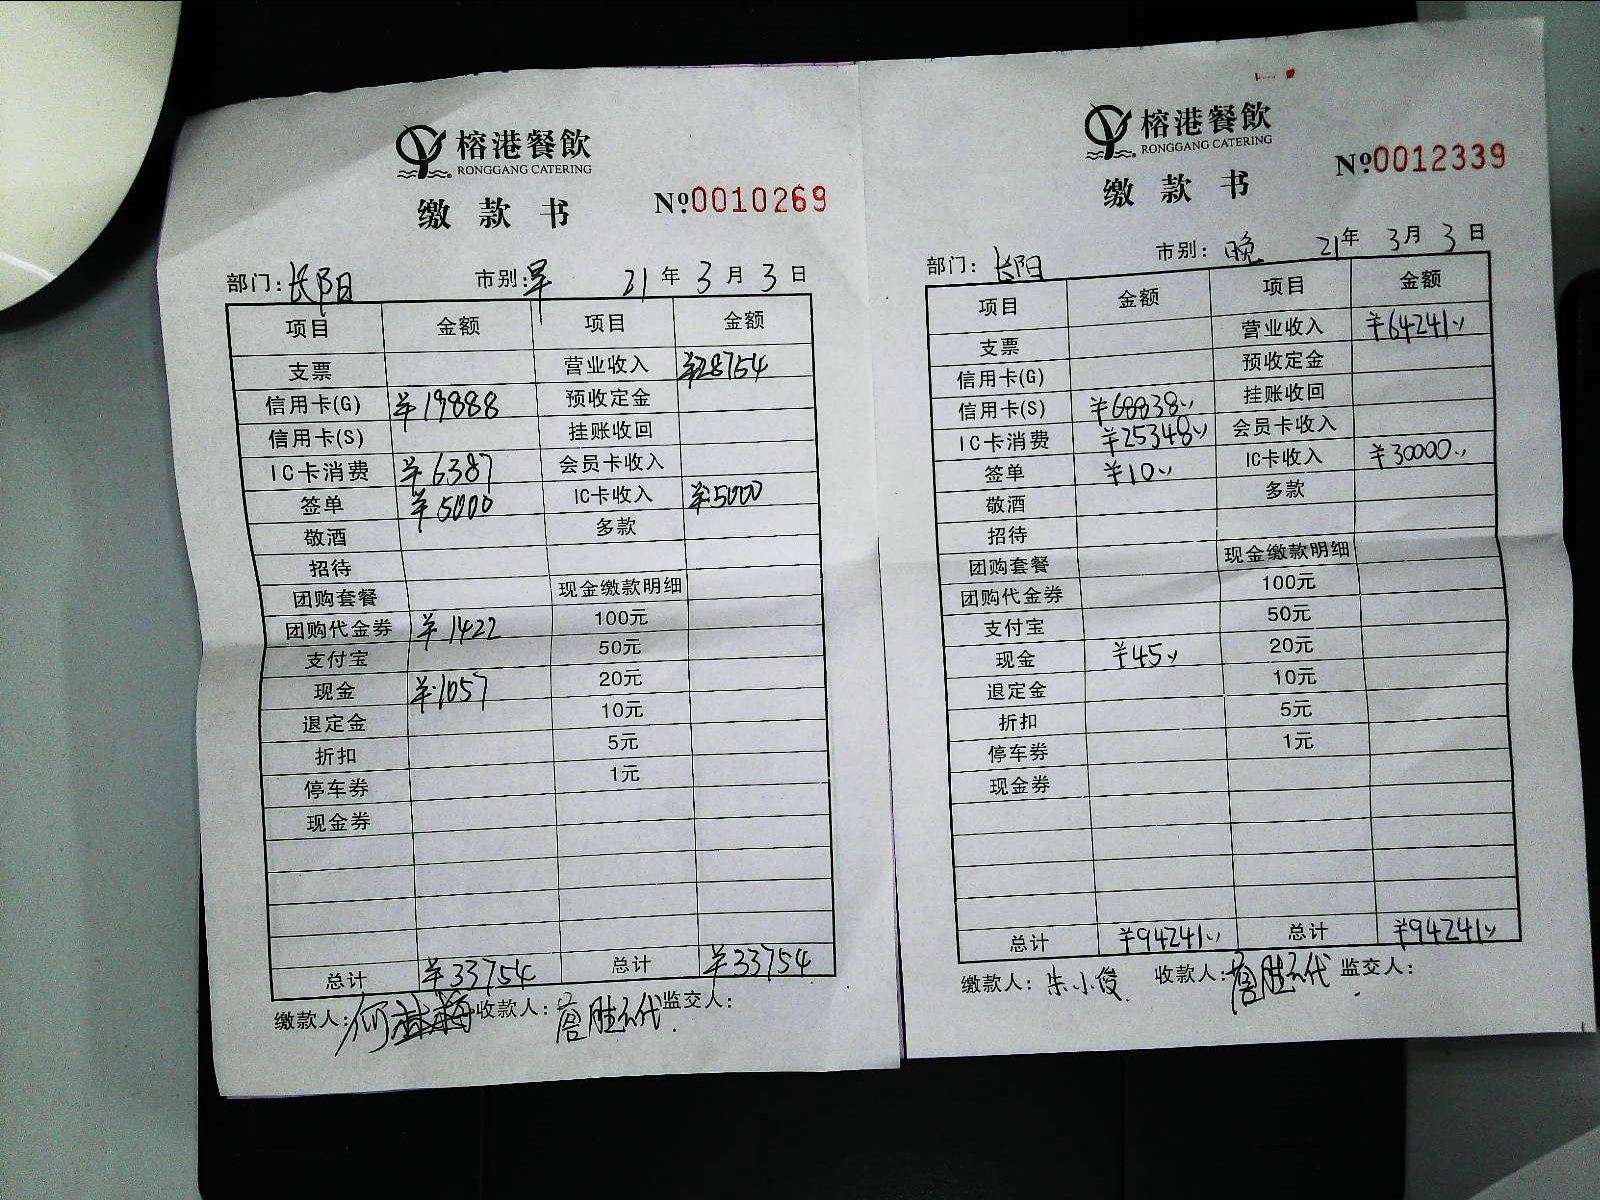 榕港餐飲
RONGGANG CATERING
缴款书
№0010269
部门:长阳 市别:早 21年3月3日
项目 金额 项目 金额
支票 营业收入 ¥28754
信用卡(G) ¥19888 预收定金
信用卡(S) 挂账收回
IC卡消费 ¥6387 会员卡收入
签单 ¥5000 IC卡收入 ¥5000
敬酒 多款
招待
团购套餐 现金缴款明细
团购代金券 ¥1422 100元
支付宝 50元
现金 ¥1057 20元
退定金 10元
折扣 5元
停车券 1元
现金券
总计 ¥33754 总计 ¥33754
缴款人: 收款人: 监交人:
榕港餐飲
RONGGANG CATERING
缴款书
№0012339
部门:长阳 市别:晚 21年3月3日
项目 金额 项目 金额
支票 营业收入 ¥64241
信用卡(G) 预收定金
信用卡(S) ¥68838 挂账收回
IC卡消费 ¥25348 会员卡收入
签单 ¥10 IC卡收入 ¥30000
敬酒 多款
招待
团购套餐 现金缴款明细
团购代金券 100元
支付宝 50元
现金 ¥45 20元
退定金 10元
折扣 5元
停车券 1元
现金券
总计 ¥94241 总计 ¥94241
缴款人:朱小俊 收款人: 监交人: